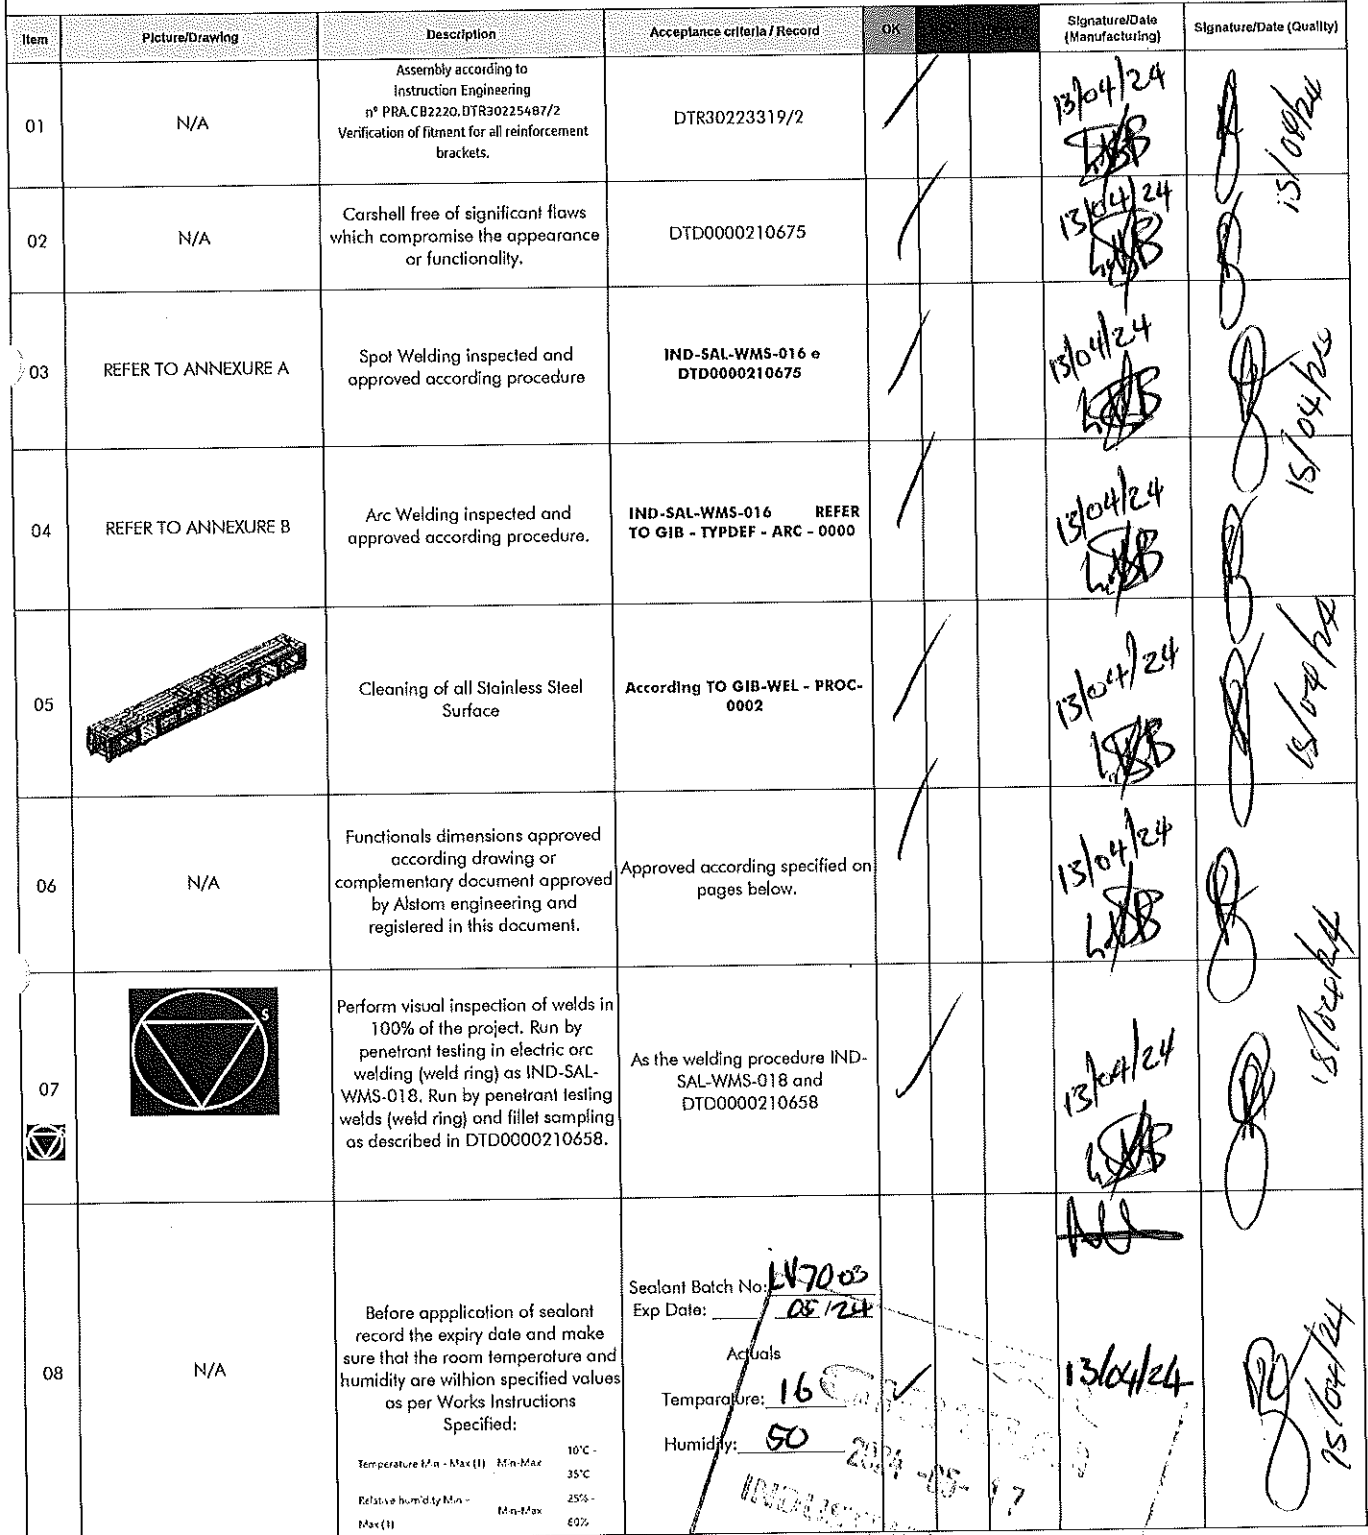 Item Picture/Drawing Description Acceptance criteria / Record OK Signature/Date (Manufacturing) Signature/Date (Quality)
01
N/A
Assembly according to
Instruction Engineering
nº PRA.CB2220.DTR30225487/2
Verification of fitment for all reinforcement
brackets.
DTR30223319/2
13/04/24
15/04/24
02
N/A
Carshell free of significant flaws
which compromise the appearance
or functionality.
DTD0000210675
13/04/24
03
REFER TO ANNEXURE A
Spot Welding inspected and
approved according procedure
IND-SAL-WMS-016 e
DTD0000210675
13/04/24
15/04/24
04
REFER TO ANNEXURE B
Arc Welding inspected and
approved according procedure.
IND-SAL-WMS-016 REFER
TO GIB - TYPDEF - ARC - 0000
13/04/24
05
Cleaning of all Stainless Steel
Surface
According TO GIB-WEL - PROC-
0002
13/04/24
15/04/24
06
N/A
Functionals dimensions approved
according drawing or
complementary document approved
by Alstom engineering and
registered in this document.
Approved according specified on
pages below.
13/04/24
07
S
Perform visual inspection of welds in
100% of the project. Run by
penetrant testing in electric arc
welding (weld ring) as IND-SAL-
WMS-018. Run by penetrant testing
welds (weld ring) and fillet sampling
as described in DTD0000210658.
As the welding procedure IND-
SAL-WMS-018 and
DTD0000210658
13/04/24
15/04/24
08
N/A
Before appplication of sealant
record the expiry date and make
sure that the room temperature and
humidity are withion specified values
as per Works Instructions
Specified:
Temperature Min - Max (1) Min-Max 10°C -
35°C
Relative humidity Min -
Max (1) Min-Max 25% -
60%
Sealant Batch No: LV7003
Exp Date: 05/24
Actuals
Temparature: 16
Humidity: 50
13/04/24
15/04/24
2024 -05- 17